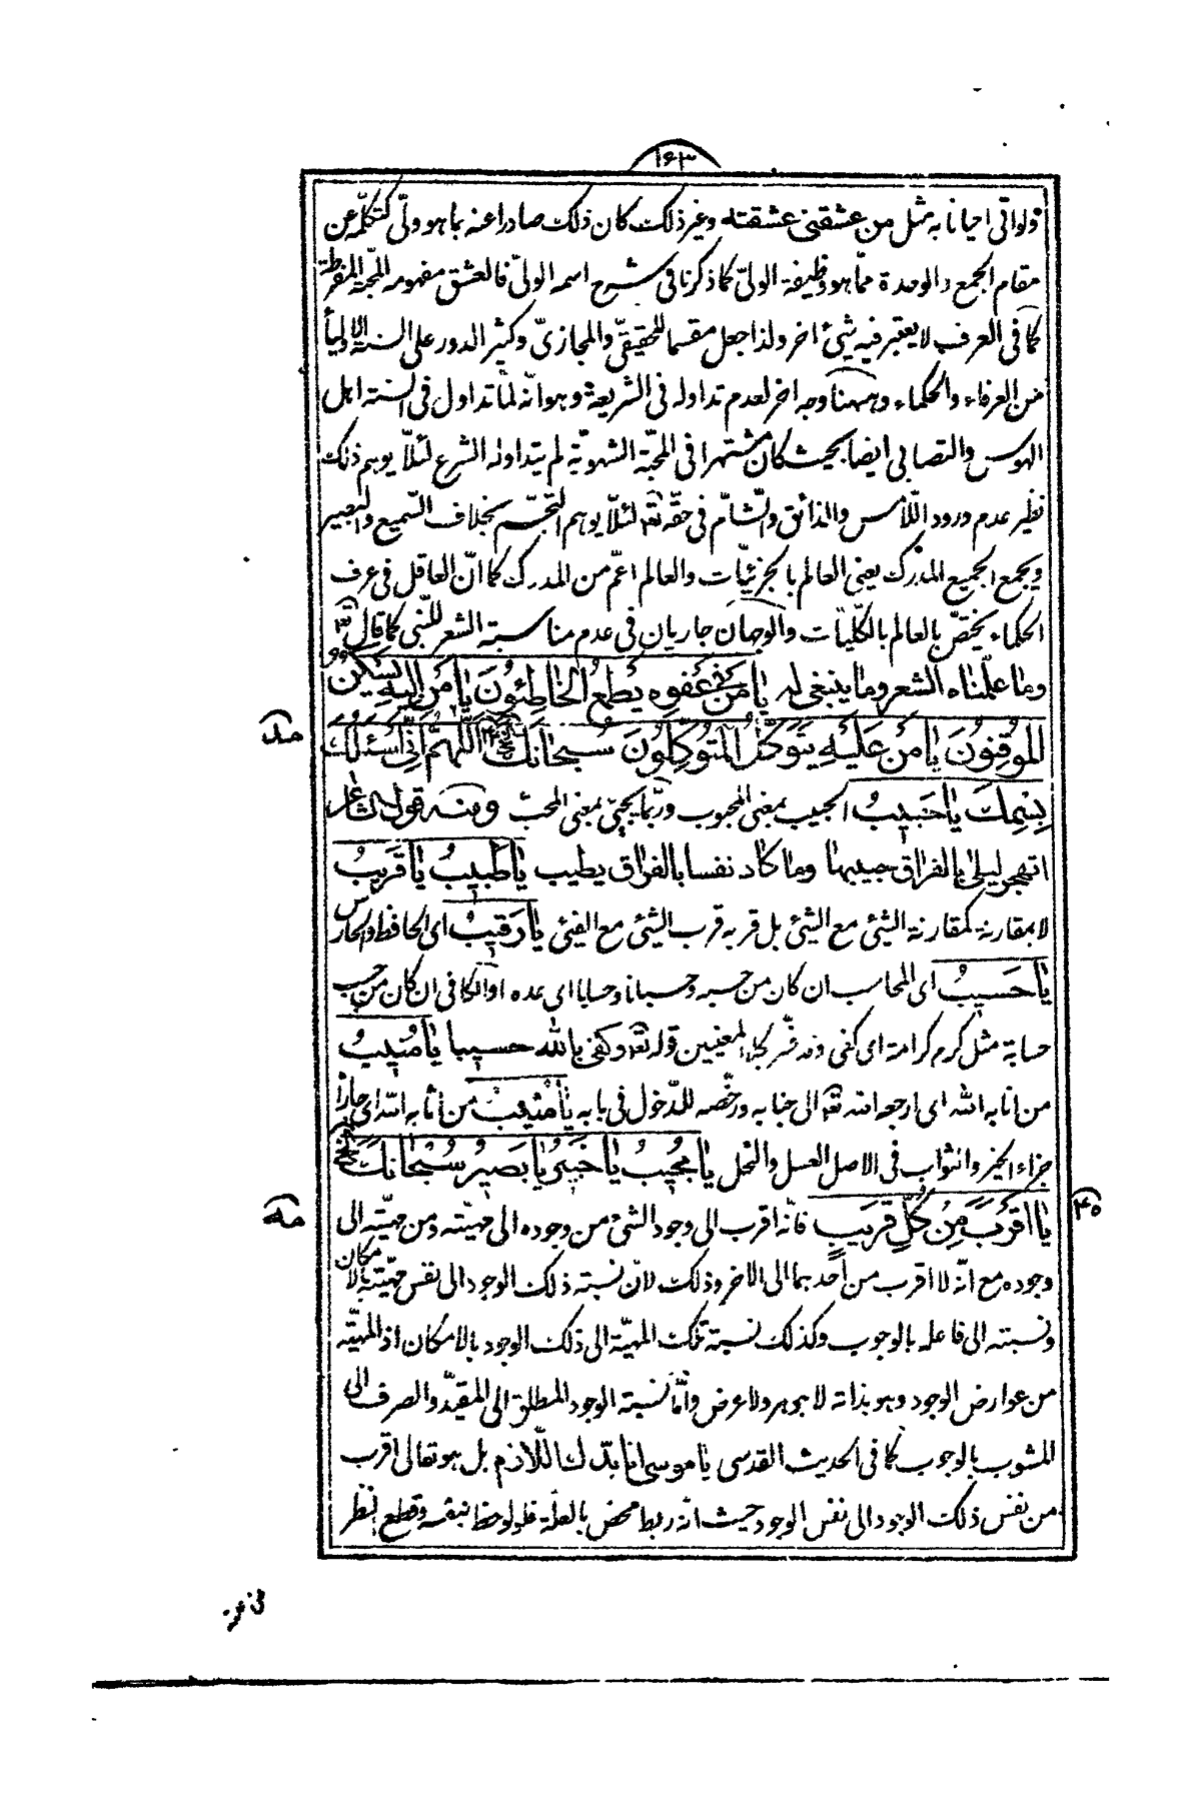 ۱۶۳
فلو اتى احيانا به مثل من عشقنى عشقته وغير ذلك كان ذلك صادرا عنه بما هو ولىّ كتكلّمه عن
مقام الجمع والوحدة ممّا هو وظيفة الولىّ كما ذكرنا فى شرح اسمه الولىّ فالعشق مفهومه المحبّة المفرطة
كما فى العرف لا يعتبر فيه شيئ اخر ولذا جعل مقسما للحقيقىّ والمجازىّ وكثير الدور على السنة الاولياء
من العرفاء والحكماء وههنا وجه اخر لعدم تداوله فى الشريعة وهو انّه لمّا تداول فى السنة اهل
الهوس والتصابى ايضا بحيث كان مشتهرا فى المحبّة الشهويّة لم يتداوله الشرع لئلّا يوهم ذلك
نظير عدم ورود اللّامس والذائق والشّامّ فى حقّه تعه لئلّا يوهم التجسّم بخلاف السّميع والبصير
ويجمع الجميع المدرك يعنى العالم بالجزئيّات والعالم اعمّ من المدرك كما انّ العاقل فى عرف
الحكماء يختصّ بالعالم بالكلّيّات والوجهان جاريان فى عدم مناسبة الشعر للنّبى كما قال تعه
وما علّمناه الشعر وما ينبغى له يا مَن فى عَفوِه يَطمَعُ الخاطِئُونَ يا مَن اِلَيهِ يَسكُنُ
المُوقِنُونَ يا مَن عَلَيهِ يَتَوَكَّلُ المُتَوَكِّلُونَ سُبحانَكَ الخ اَللّهُمَّ اِنّى اَسئَلُكَ
مد
بِاسمِكَ يا حَبيبُ الحبيب بمعنى المحبوب وربّما يجيئ بمعنى المحبّ ومنه قول الشاعر
اتهجر ليلى بالفراق حبيبها وما كاد نفسا بالفراق يطيب يا طَبيبُ يا قَريبُ
لا بمقارنة كمقارنة الشيئ مع الشيئ بل قربه قرب الشيئ مع الفيئ يا رَقيبُ اى الحافظ والحارس
يا حَسيبُ اى المحاسب ان كان من حسبه وحسبانا وحسابا اى عده او الكافى ان كان من حسب
حسابة مثل كرم كرامة اى كفى وقد فسّر بكلا المعنيين قوله تعه وكفى بالله حسيبا يا مُنيبُ
من انابه الله اى ارجعه الله تعه الى جنابه ورخّصه للدّخول فى بابه يا مُثيبُ من اثابه الله اى جازاه
جزاء الخير والثواب فى الاصل العسل والنحل يا مُجيبُ يا خَبيرُ يا بَصيرُ سُبحانَكَ الخ
يا اَقرَبَ مِن كُلِّ قَريبٍ فانّه اقرب الى وجود الشئ من وجوده الى مهيّته ومن مهيّته الى
۴۵
مه
وجوده مع انّه لا اقرب من احدهما الى الاخر وذلك لانّ نسبة ذلك الوجود الى نفس مهيّته بالامكان
ونسبته الى فاعله بالوجوب وكذلك نسبة تلك المهيّة الى ذلك الوجود بالامكان اذ المهيّة
من عوارض الوجود وهو بذاته لا جوهر ولا عرض وامّا نسبة الوجود المطلق الى المقيّد والصرف الى
المشوب بالوجوب كما فى الحديث القدسى يا موسى انا بدّك اللّازم بل هو تعالى اقرب
من نفس ذلك الوجود الى نفس الوجود حيث انّه ربط محض بالعلّة فلو لوحظ نبفسه وقطع النظر